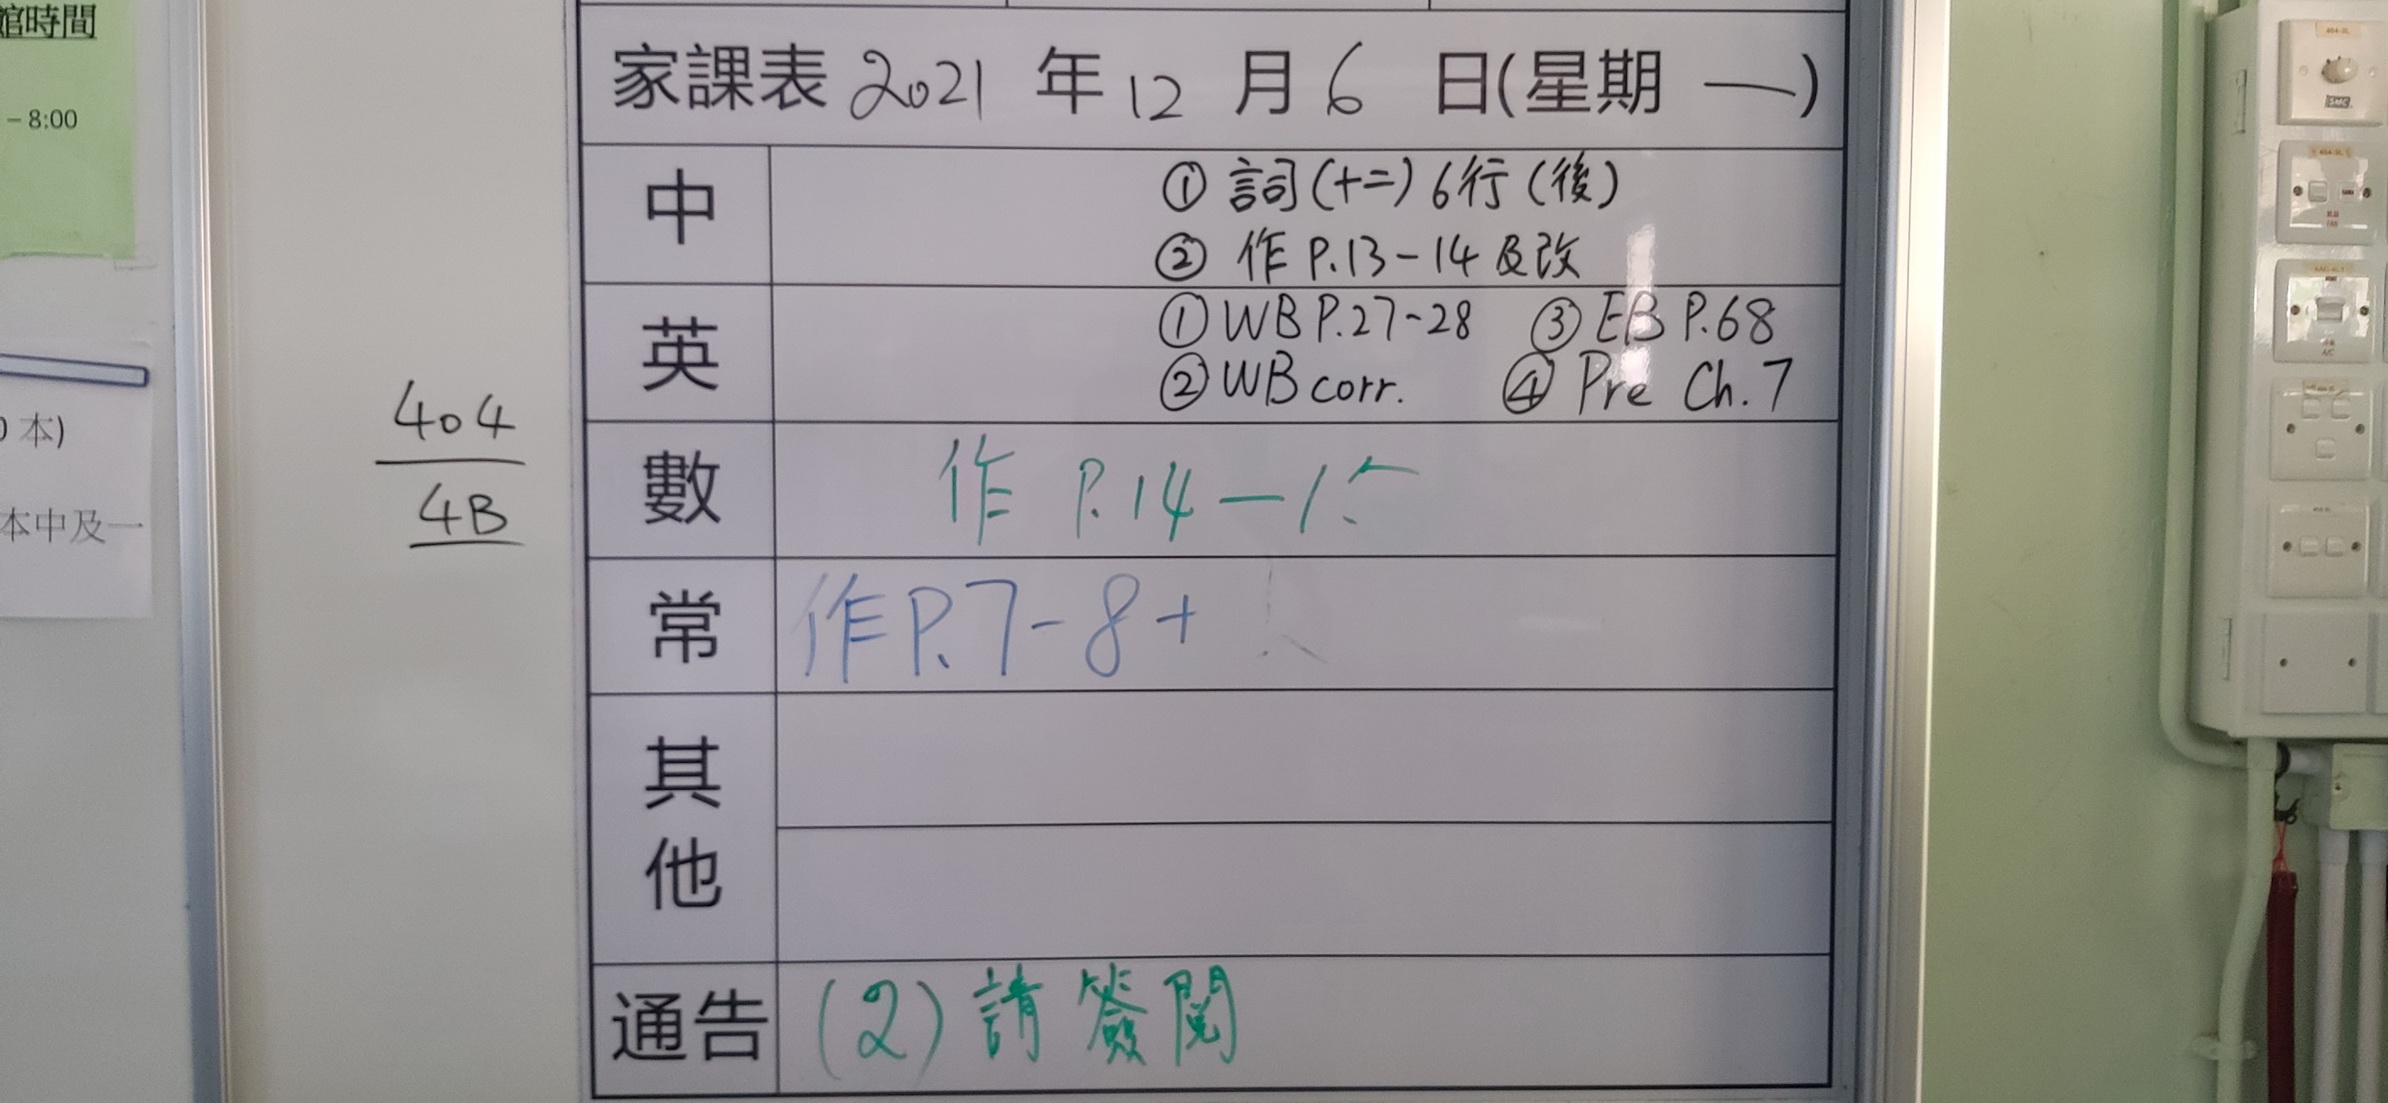 館時間
– 8:00
本)
本中及一
404
4B
家課表 2021 年 12 月 6 日(星期 一)
中
① 詞(十二) 6行(後)
② 作 P.13-14 及改
英
① WB P.27-28 ③ EB P.68
② WB corr. ④ Pre Ch.7
數
作 P.14-15
常
作P.7-8+
其他
通告
(2) 請簽閱